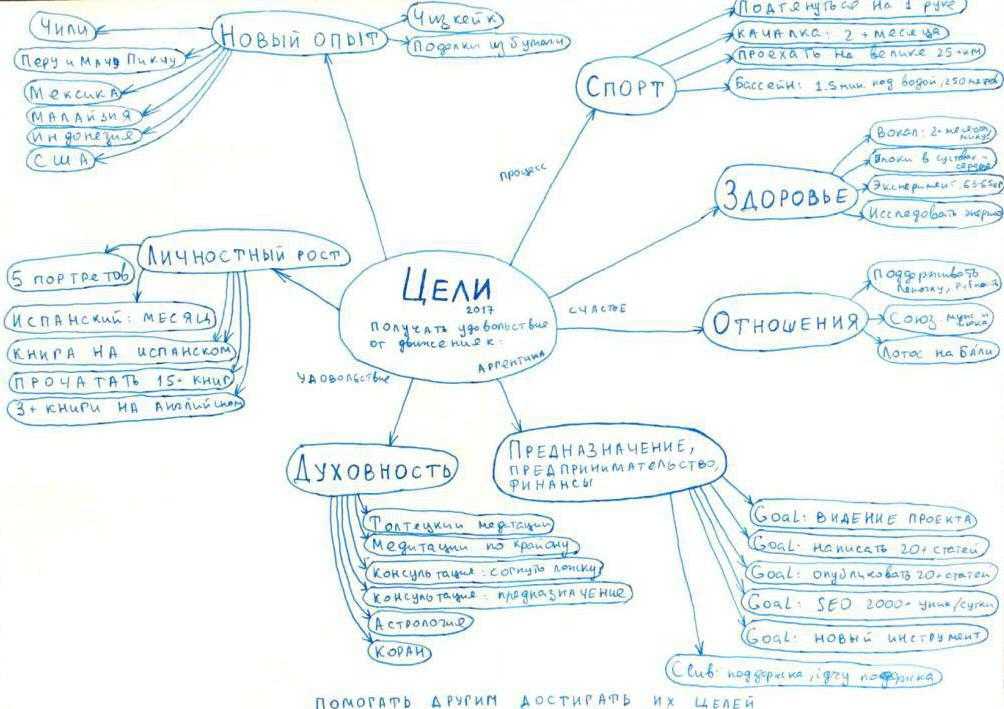 Новый опыт
Чили
Перу и Мачу Пикчу
Мексика
Малайзия
Индонезия
США
Чизкейк
Поделки из бумаги
Спорт
Подтянуться на 1 руке
качалка: 2+ месяца
проехать на велике 25+км
Бассейн: 1.5 мин под водой, 250 метров
процесс
Здоровье
Вокал: 2+ месяца
Блоки в суставах -
Эксперимент: 63-65кг
Исследовать
Личностный рост
5 портретов
Испанский: месяц
книга на испанском
прочатать 15+ книг
3+ книги на английском
Цели
2017
получать удовольствие
от движения к:
Аргентина
счастье
удовольствие
Отношения
Поддерживать
Союз муж и
Лотос на Бали
Духовность
Толтецкии медтации
Медитации по крайону
консультация: согнуть ложку
консультация: предназначение
Астрология
Коран
Предназначение,
предпринимательство,
финансы
Goal: видение проекта
Goal: написать 20+ статей
Goal: опубликовать 20+ статей
Goal: SEO 2000+ уник/сутки
Goal: новый инструмент
поддержка, поддержка
помогать другим достигать их целей